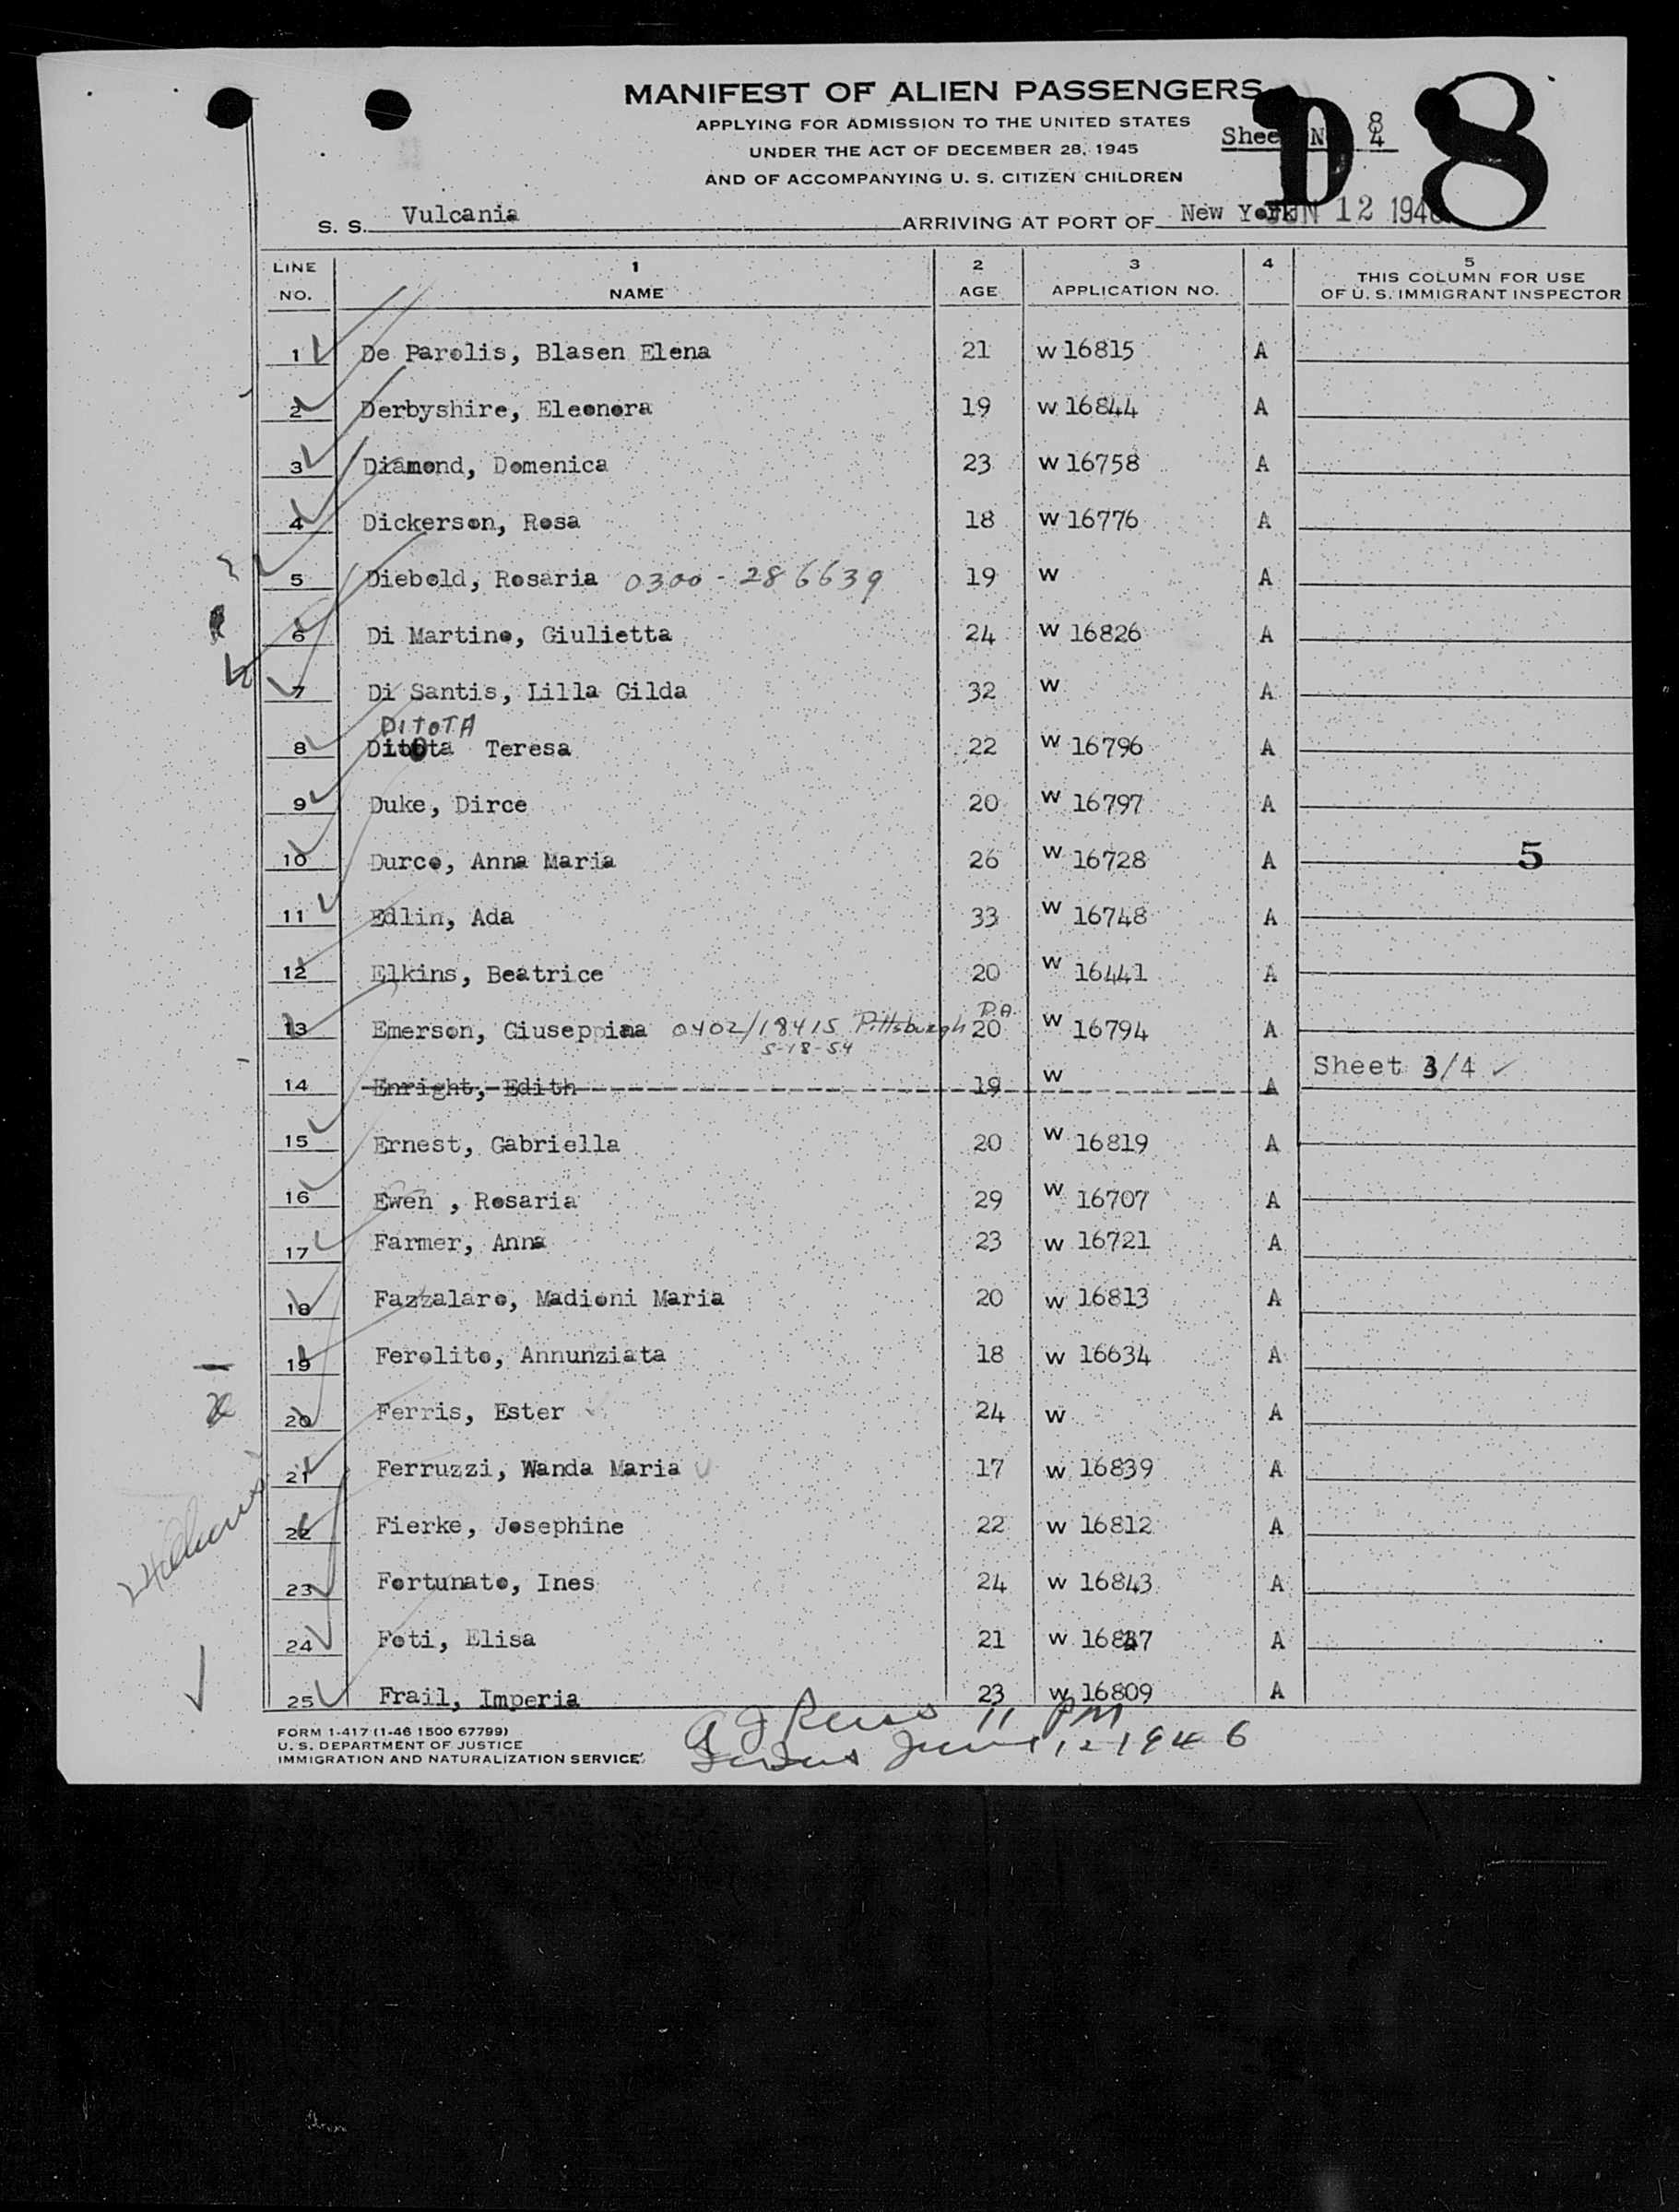 MANIFEST OF ALIEN PASSENGERS
APPLYING FOR ADMISSION TO THE UNITED STATES
UNDER THE ACT OF DECEMBER 28, 1945
AND OF ACCOMPANYING U. S. CITIZEN CHILDREN
D 8
Sheet N 8
4
S. S. Vulcania ARRIVING AT PORT OF New York JUN 12 1946
LINE NO. 1 NAME 2 AGE 3 APPLICATION NO. 4 5 THIS COLUMN FOR USE OF U. S. IMMIGRANT INSPECTOR
1 De Parolis, Blasen Elena 21 W 16815 A
2 Derbyshire, Eleonora 19 W 16844 A
3 Diamond, Domenica 23 W 16758 A
4 Dickerson, Rosa 18 W 16776 A
5 Diebold, Rosaria 0300-286639 19 W A
6 Di Martino, Giulietta 24 W 16826 A
7 Di Santis, Lilla Gilda 32 W A
DITOTA
8 Ditota Teresa 22 W 16796 A
9 Duke, Dirce 20 W 16797 A
10 Durco, Anna Maria 26 W 16728 A 5
11 Edlin, Ada 33 W 16748 A
12 Elkins, Beatrice 20 W 16441 A
13 Emerson, Giuseppina 0402/18415 Pittsburgh PA 20 W 16794 A
5-18-54
14 Enright, Edith 19 W A Sheet 3/4
15 Ernest, Gabriella 20 W 16819 A
16 Ewen , Rosaria 29 W 16707 A
17 Farmer, Anna 23 W 16721 A
18 Fazzalaro, Madioni Maria 20 W 16813 A
19 Ferolito, Annunziata 18 W 16634 A
20 Ferris, Ester 24 W A
21 Ferruzzi, Wanda Maria 17 W 16839 A
22 Fierke, Josephine 22 W 16812 A
23 Fortunato, Ines 24 W 16843 A
24 Foti, Elisa 21 W A
25 Frail, Imperia 23 W 16809 A
11 PM
June 12 1946
FORM 1-417 (1-46 1500 67799)
U. S. DEPARTMENT OF JUSTICE
IMMIGRATION AND NATURALIZATION SERVICE